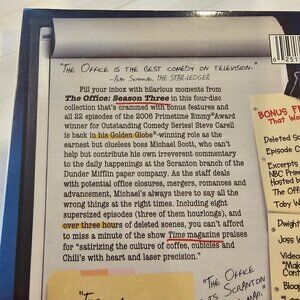 "THE OFFICE IS THE BEST COMEDY ON TELEVISION."
THE STAR-LEDGER
Fill your inbox with hilarious moments from
The Office: Season Three in this four-disc
collection that's crammed with bonus features and
all 22 episodes of the 2006 Primetime Emmy® Award
winner for Outstanding Comedy Series! Steve Carell
is back in his Golden Globe®-winning role as the
earnest but clueless boss Michael Scott, who can't
help but contribute his own irreverent commentary
to the daily happenings at the Scranton branch of the
Dunder Mifflin paper company. As the staff deals
with potential office closures, mergers, romances and
advancement, Michael's always there to say all the
wrong things at the right times. Including eight
supersized episodes (three of them hourlongs), and
over three hours of deleted scenes, you can't afford
to miss a minute of the show Time magazine praises
for "satirizing the culture of coffee, cubicles and
Chili's with heart and laser precision."
"THE OFFICE
SCRANTON
BONUS
That
Deleted
Episode C
Excerpts
NBC Prim
Hosted b
The O
Toby W
Dwight
Joss W
Video
"Mak
Cont
Bloo